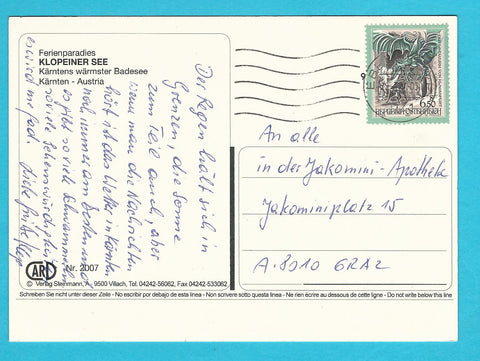 Ferienparadies
KLOPEINER SEE
Kärntens wärmster Badesee
Kärnten - Austria
Der Regen hält sich in
Grenzen, die Sonne
zum Teil auch, aber
wenn man die Nachrichten
hört ist das Wetter in Kärnten
noch immer am besten und
es gibt so viel Schwammerln
soviele Sehenswürdigkeiten
es wird nie fad. Liebe Grüße
6.50
REPUBLIK ÖSTERREICH
An alle
in der Jakomini-Apotheke
Jakominiplatz 15
A-8010 GRAZ
ARD
Nr. 2007
© Verlag Steinmann, A - 9500 Villach, Tel. 04242-56062, Fax 04242-533062
Schreiben Sie nicht unter dieser Zeile - No escribir por debajo de esta linea - Non scrivere sotto questa linea - Ne rien écrire au dessous de cette ligne - Do not write below this line